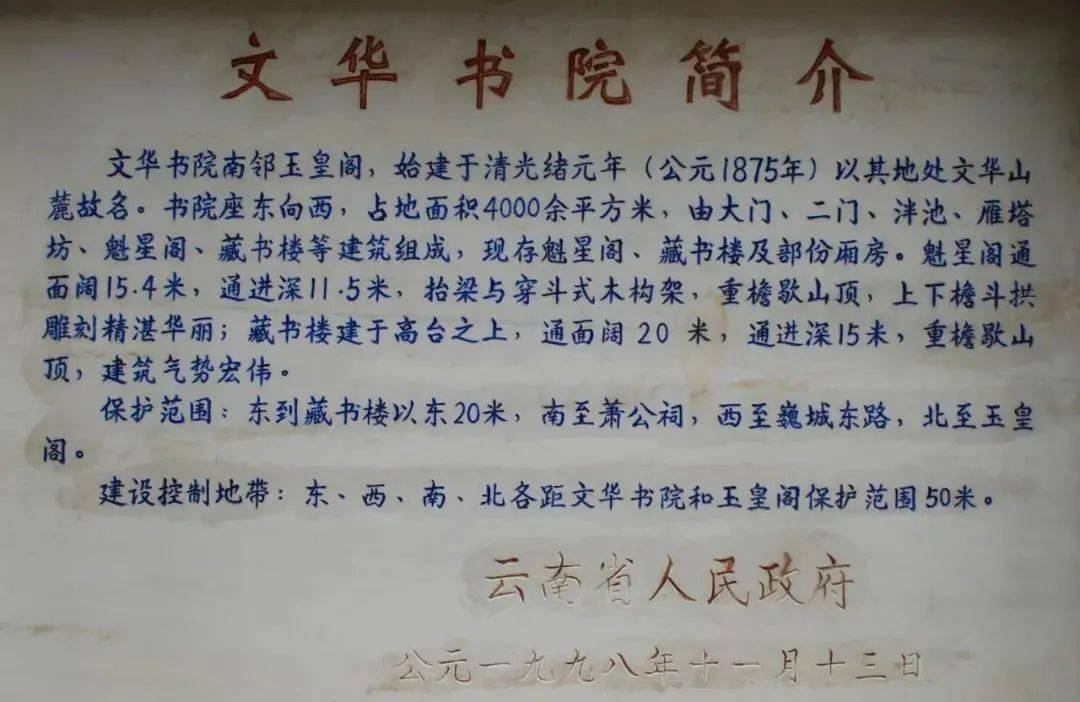 文华书院简介
文华书院南邻玉皇阁，始建于清光绪元年（公元1875年）以其地处文华山
麓故名。书院座东向西，占地面积4000余平方米，由大门、二门、泮池、雁塔
坊、魁星阁、藏书楼等建筑组成，现存魁星阁、藏书楼及部份厢房。魁星阁通
面阔15.4米，通进深11.5米，抬梁与穿斗式木构架，重檐歇山顶，上下檐斗拱
雕刻精湛华丽；藏书楼建于高台之上，通面阔20米，通进深15米，重檐歇山
顶，建筑气势宏伟。
保护范围：东到藏书楼以东20米，南至萧公祠，西至巍城东路，北至玉皇
阁。
建设控制地带：东、西、南、北各距文华书院和玉皇阁保护范围50米。
云南省人民政府
公元一九九八年十一月十三日